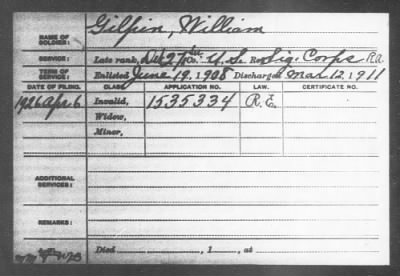 Gilpin, William
NAME OF SOLDIER:
SERVICE: Late rank, Co. U.S. Reg't Sig. Corps R.A.
TERM OF SERVICE: Enlisted June 19, 1908 Discharged Mar. 12, 1911
DATE OF FILING. CLASS. APPLICATION NO. LAW. CERTIFICATE NO.
1926 Apr. 6 Invalid, 1535334 R.E.
Widow,
Minor,
ADDITIONAL SERVICES:
REMARKS:
Died , 1 , at